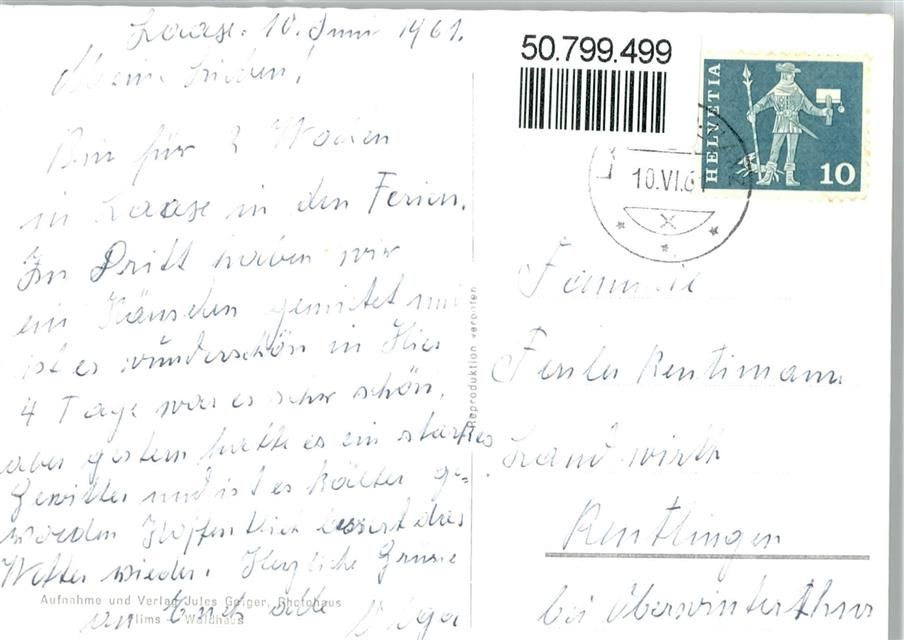 Laax. 10. Juni 1961.
Meine Lieben!
Bin für 2 Wochen
in Laax in den Ferien.
Zu Dritt haben wir
ein Häuschen gemietet und
ist es wunderschön in Hier
4 Tage war es sehr schön,
aber gestern hatte es ein starkes
Gewitter und ist es kälter ge-
worden Hoffentlich bessert das
Wetter wieder. Herzliche Grüsse
an Euch alle
Aufnahme und Verlag Jules Geiger, Photohaus
Flims - Waldhaus
Reproduktion verboten
50.799.499
HELVETIA
10
10.VI.61
Familie
Landwirth
Reutlingen
bei Oberwinterthur